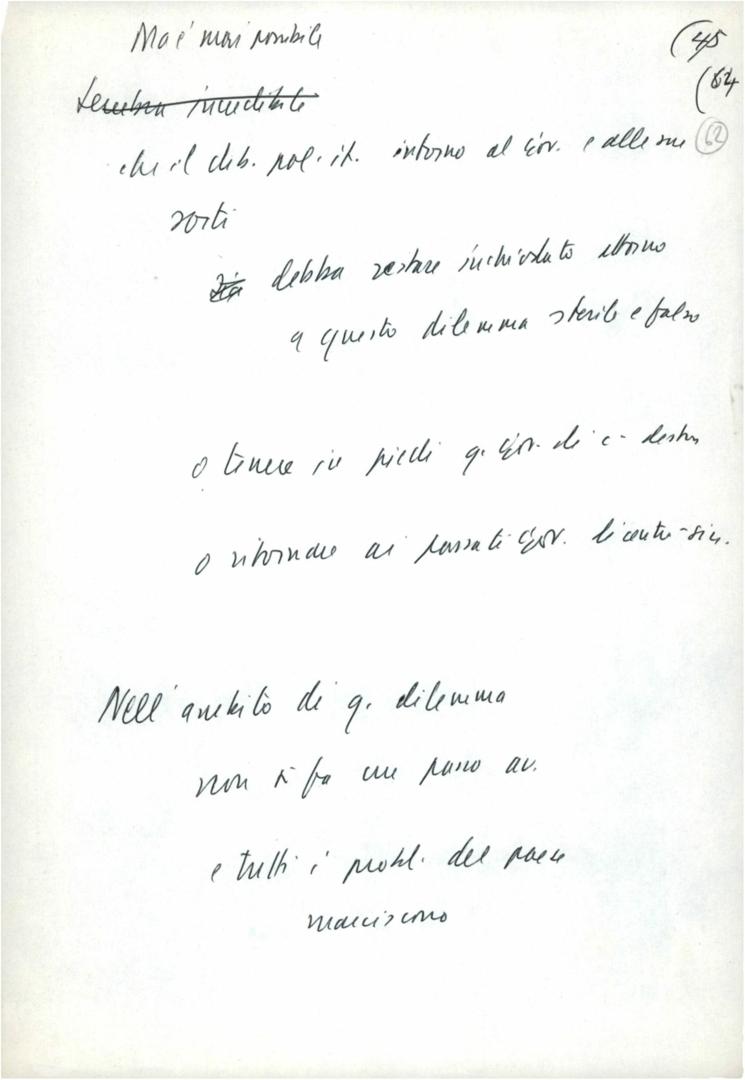 Ma è mai possibile
(45
Sembra incredibile
(64
che il dib. pol. it. intorno al gov. e alle sue
62
sorti
sia debba restare inchiodato attorno
a questo dilemma sterile e falso
o tenere in piedi q. gov. di c- destra
o ritornare ai passati gov. di centro-sin.
Nell'ambito di q. dilemma
non si fa un passo av.
e tutti i probl. del paese
marciscono